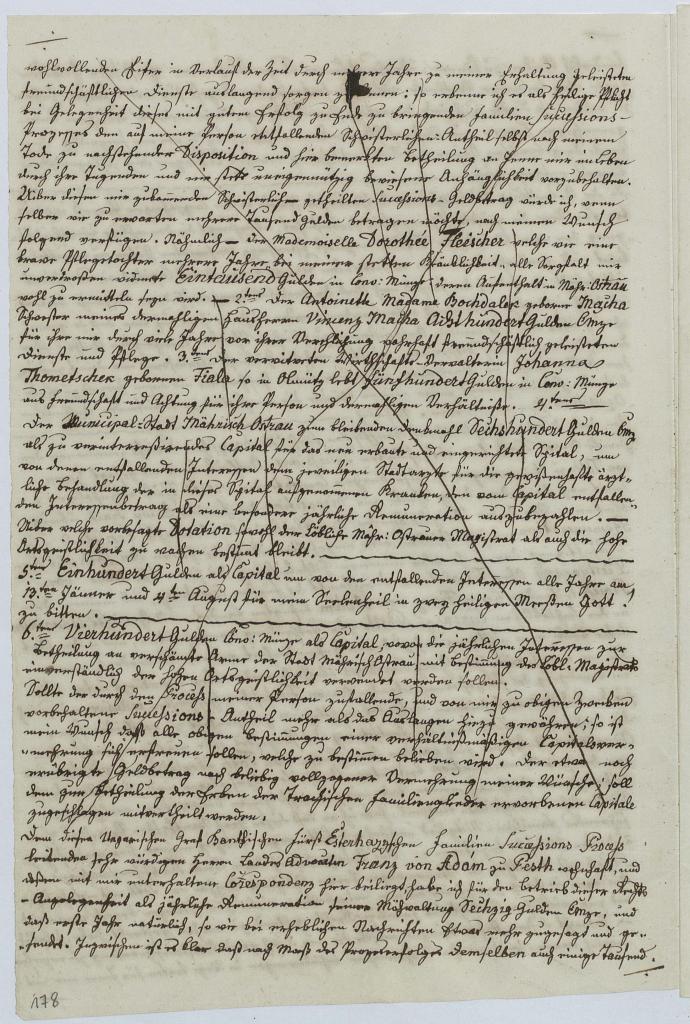 wohlwollenden Eifer im Verlauf der Zeit durch mehrere Jahre zu meiner Erhaltung geleisteten
freundschäftlichen Dienste auslangend sorgen zu können; so erkenne ich es als heilige Pflicht
bei Gelegenheit dieses mit gutem Erfolg zu Ende zu bringenden Familien Successions-
Prozesses den auf meine Person entfallenden Schwisterlichen Antheil selbst nach meinem
Tode zu nachstehender Disposition und hier bemerkten Betheilung an Jene mir im Leben
durch ihre Tugenden und mir stets uneigennützig bewiesene Anhänglichkeit vorzubehalten.
Uiber diesen mir zukommenden Schwisterlich-getheilten Successions-Geldbetrag würde ich, wenn
selber wie zu erwarten mehrere Tausend Gulden betragen möchte, nach meinem Wunsch
folgend verfügen. Nähmlich – der Mademoiselle Dorothee Fleischer welche wie eine
brave Pflegetochter mehrere Jahre bei meiner steten Kränklichkeit alle Sorgfalt mir
unverdrossen widmete Eintausend Gulden in Conv: Münze deren Aufenthalt in Mähr: Ostrau
wohl zu ermitteln seyn wird. – 2tens Der Antoinette Madame Bochdalek geborne Macha
Schwester meines dermahligen Hausherrn Vincenz Macha Achthundert Gulden CMze
für ihre mir durch viele Jahre vor ihrer Verehlichung wahrhaft freundschäftlich geleisteten
Dienste und Pflege. 3tens Der verwitweten Wirthschafts-Verwalterin Johanna
Thometschek gebornen Fiala so in Olmütz lebt Fünfhundert Gulden in Conv: Münze
aus Freundschaft und Achtung für ihre Person und dermahligen Verhältniße. 4tens
Der Municipal-Stadt Mährisch Ostrau zum bleibenden Denkmahl Sechshundert Gulden CMz
als zu verinteressirendes Capital für das neu erbaute und eingerichtete Spital, um
von denen entfallenden Interessen dem jeweiligen Stadtarzte für die gewissenhafte ärzt-
liche Behandlung der in dieses Spital aufgenommenen Kranken, den vom Capital entfallen-
den Interessenbetrag als eine besondere jährliche Remuneration auszubezahlen. –
Uiber welche vorbesagte Dotation sowohl der Löbliche Mähr: Ostrauer Magistrat als auch die hohe
Ortsgeistlichkeit zu wachen bestimmt bleibt.
5tens Einhundert Gulden als Capital um von den entfallenden Interessen alle Jahre am
13ten Jänner und 4ten August für mein Seelenheil in zwey heiligen Messen Gott!
zu bitten.
6tens Vierhundert Gulden Conv: Münze als Capital, wovon die jährlichen Interessen zur
Betheilung an verschämte Arme der Stadt Mährisch Ostrau, mit Bestimmung des Löbl: Magistrats
einverständlich der hohen Ortsgeistlichkeit verwendet werden sollen.
Sollte der durch den Process meiner Person zufallende, und von mir zu obigen Zwecken
vorbehaltene Successions-Antheil mehr als das Auslangen hiezu gewähren; so ist
mein Wunsch daß alle obigen Bestimmungen einer verhältnißmäßigen Capitalsver-
-mehrung sich erfreuen sollen, welche zu bestimmen belieben wird. Der etwa noch
erübrigte Geldbetrag nach beliebig vollzogener Vermehrung meiner Wünsche, soll
dem zur Betheilung der Erben der Familienglieder erworbenen Capitale
zugeschlagen mitvertheilt werden.
Dem diesen Ungarischen Graf Fürst Esterhazyschen Familien Successions Process
leitenden sehr würdigen Herrn Landes Advokaten Franz von Adám zu Pesth wohnhaft, und
dessen mit mir unterhaltene Correspondenz hier beiliegt, habe ich für den Betrieb dieser Rechts-
-Angelegenheit als jährliche Remuneration seiner Mühwaltung Sechzig Gulden CMze, und
daß erste Jahr natürlich, so wie bei erheblichen Nachrichten etwas mehr zugesagt und ge-
-sendet. Inzwischen ist es klar daß nach Maß des Prozeserfolges demselben auch einige Tausend.
178